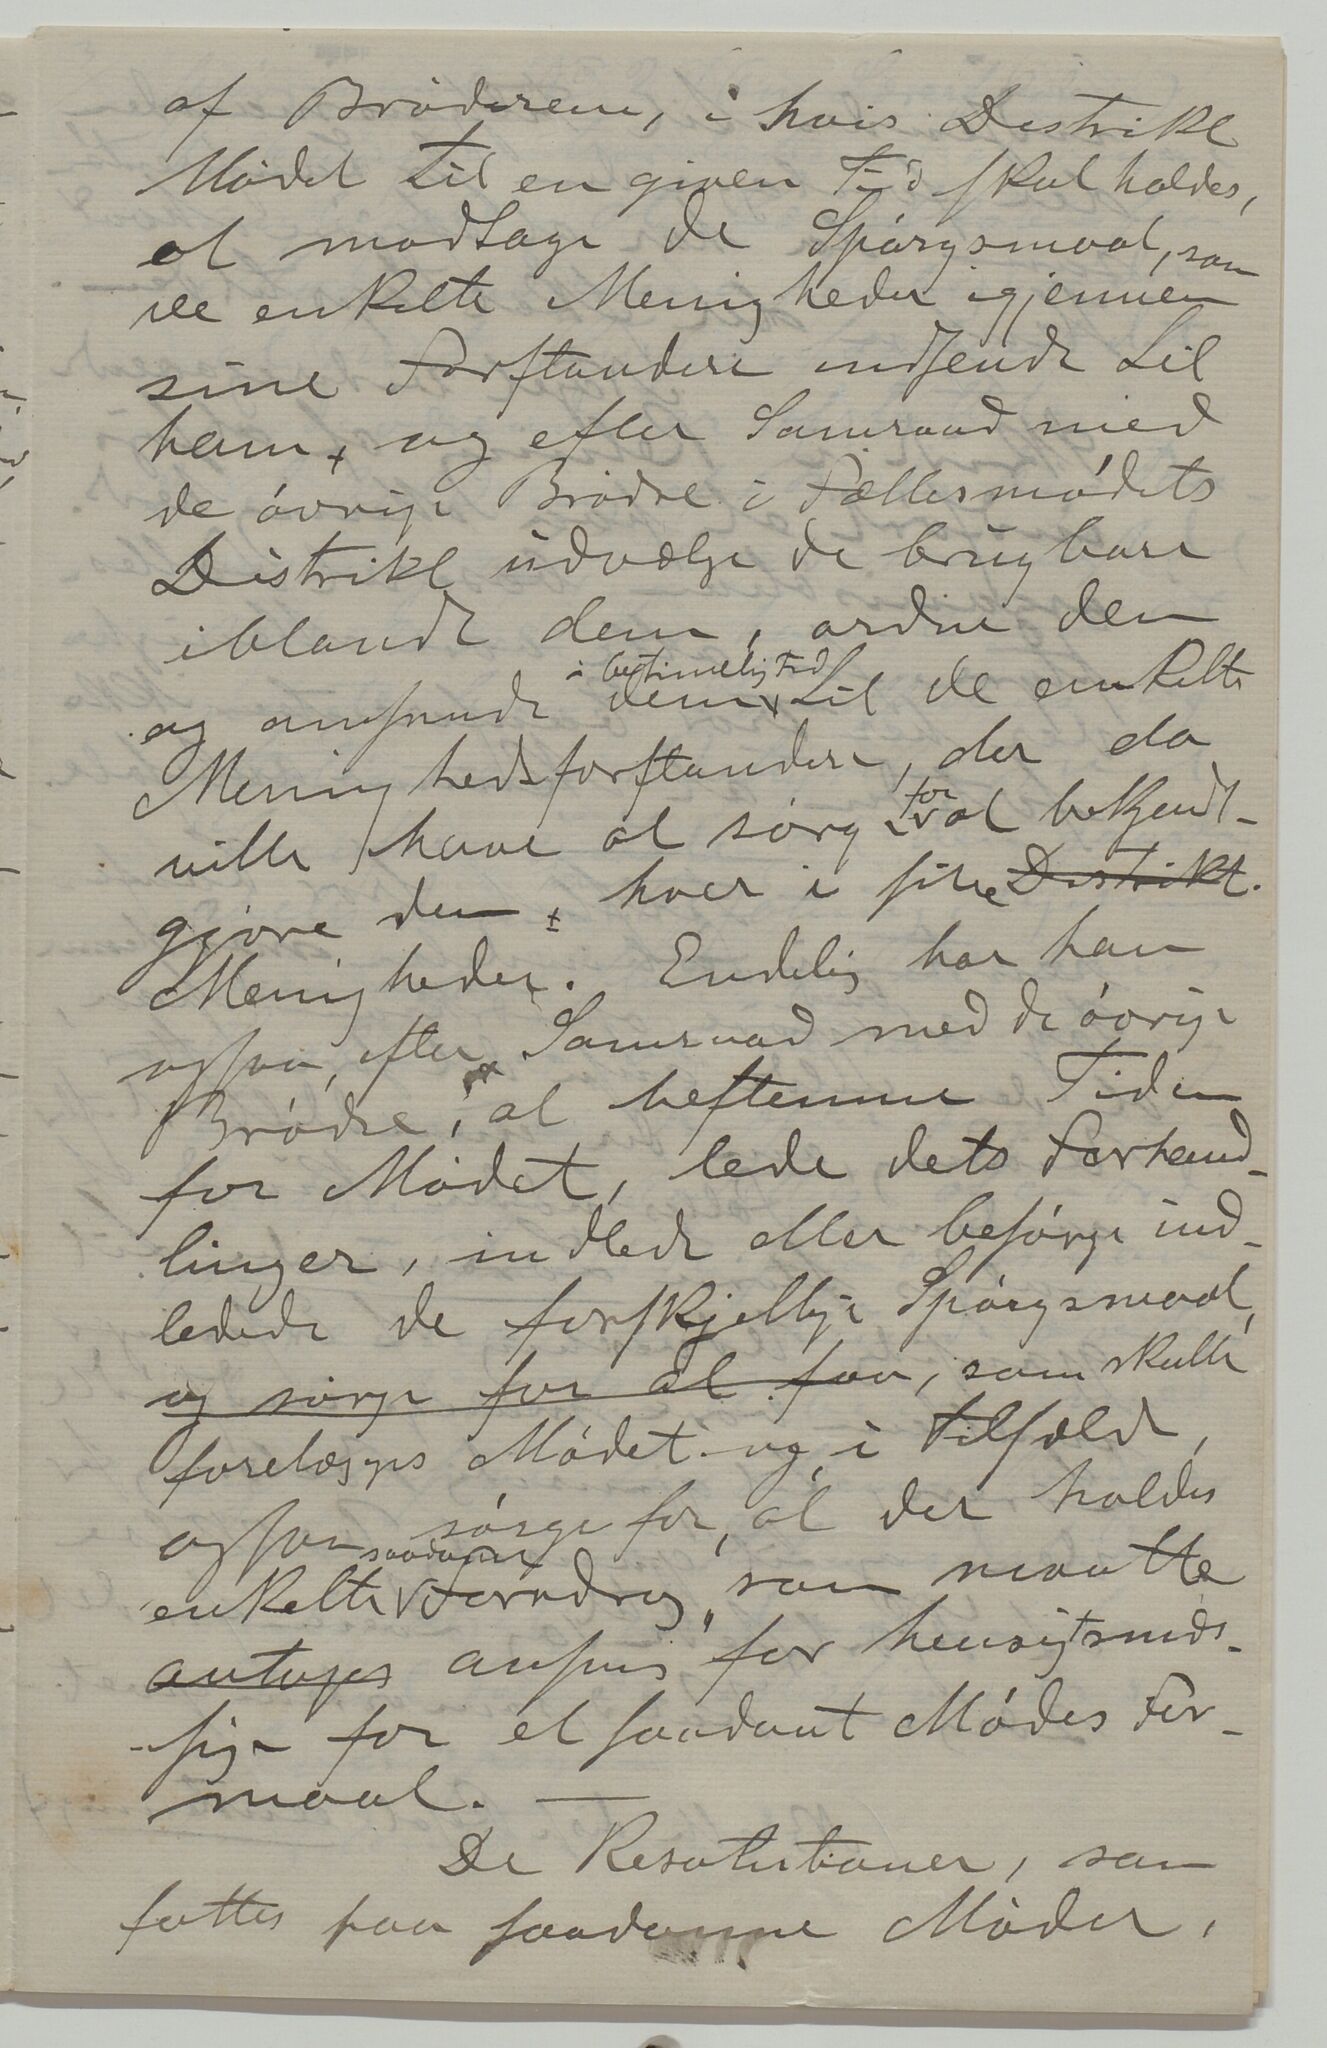 af Brödrene, i hvis Distrikt
Mödet til en given Tid skal holdes,
at modtage de Spörgsmaal, som
de enkelte Menigheder igjennem
sine Forstandere indsende til
ham, og efter Samraad med
de övrige Brödre i Fællesmödets
Distrikt udvælge de brugbare
iblandt dem, ordne dem
i betimelig Tid
og ansende dem til de enkelte
Menighedsforstandere, der da
for
ville have at sörge at bekjendt-
gjöre dem, hver i sine Distrikt.
Menigheder. Endelig har han
ogsaa, efter Samraad med de övrige
Brödre, at bestemme Tiden
for Mödet, lede dets Forhand-
linger, indlede eller besörge ind-
ledede de forskjellige Spörgsmaal,
og sörge for at faa, som skulle
forelægges Mödet og, i Tilfælde,
ogsaa sörge for, at der holdes
saadanne
enkelte Foredrag, som maatte
antages ansees for hensigtsmæs-
sige for et saadant Mödes For-
maal. —
De Resolutioner, som
fattes paa saadanne Möder,